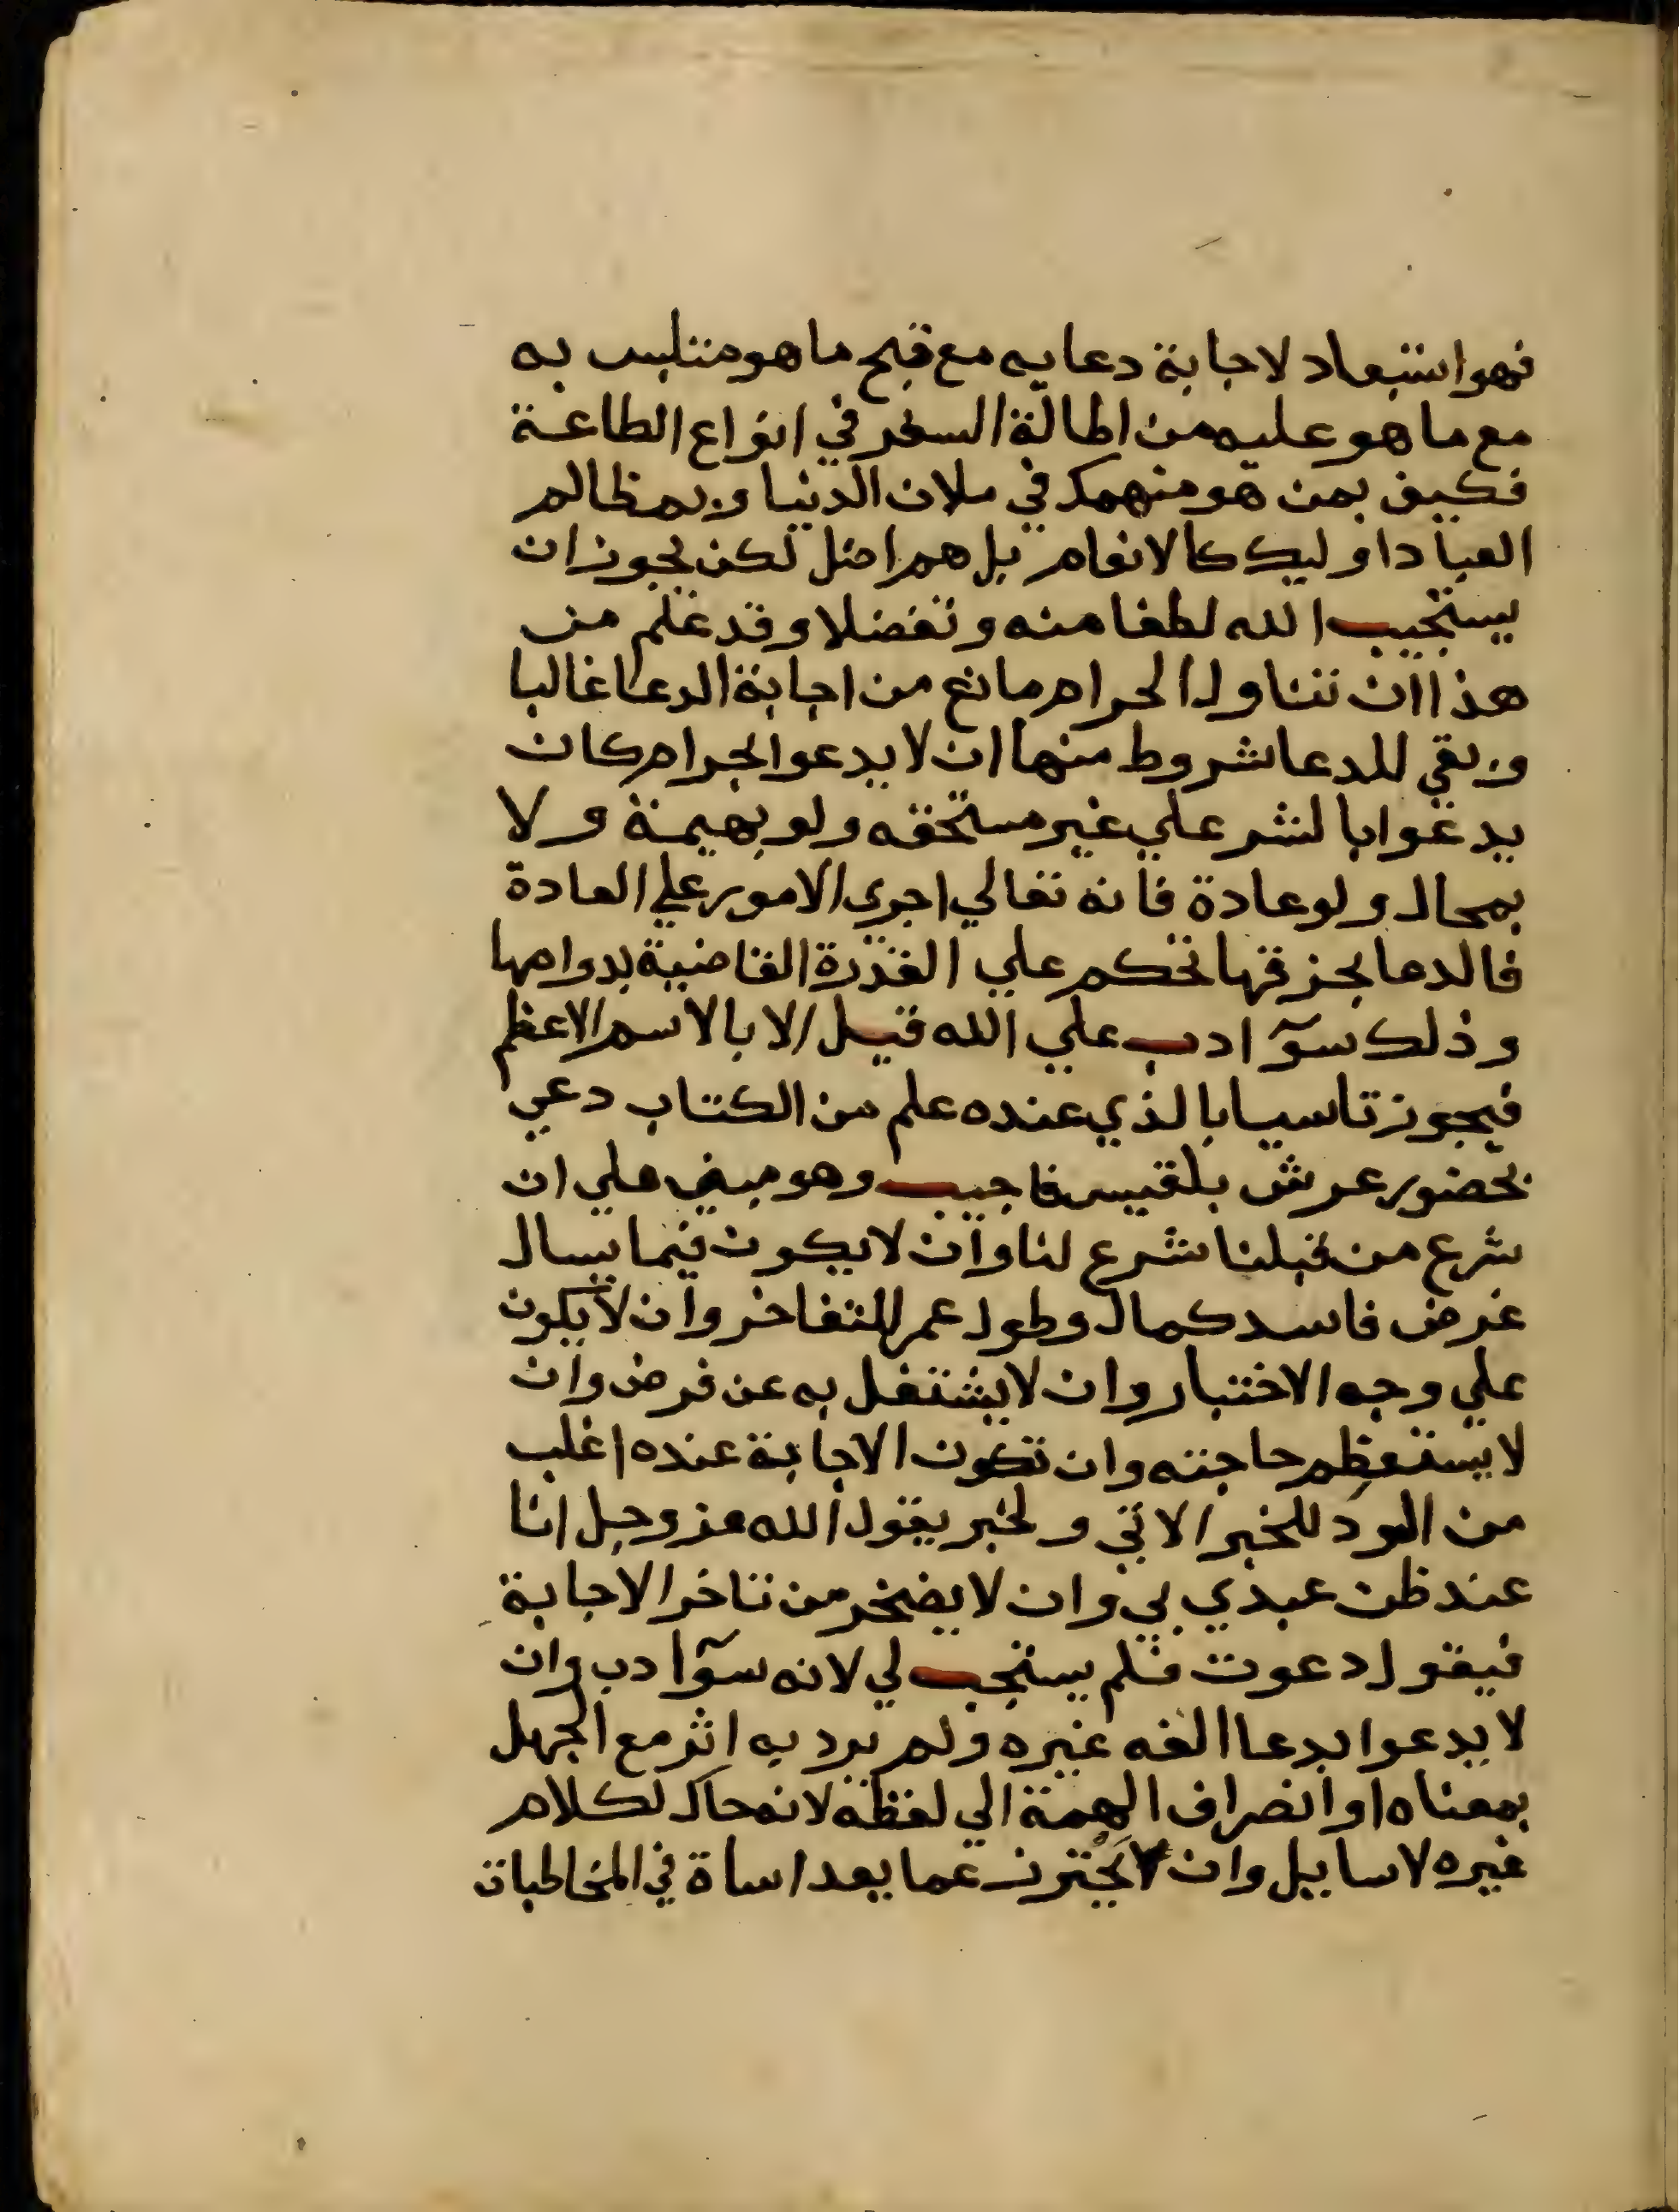 فهو استبعاد لاجابة دعايه مع قبح ما هو متلبس به
مع ما هو عليه من اطالة السفر في انواع الطاعة
فكيف بمن هو منهمك في ملاذ الدنيا وبمظالم
العباد اوليك كالانعام بل هم اضل لكن يجوز ان
يستجيب الله لطفا منه وتفضلا وقد علم من
هذا ان تناول الحرام مانع من اجابة الدعا غالبا
وبقي للدعا شروط منها ان لا يدعوا بحرام كان
يدعوا بالشر علي غير مستحقه ولو بهيمة ولا
بمحال ولو عادة فانه تعالي اجري الامور علي العادة
فالدعا بخرقها تحكم علي القدرة القاضية بدوامها
وذلك سوٓ ادب علي الله قيل الا بالاسم الاعظم
فيجوز تاسيا بالذي عنده علم من الكتاب دعي
بحضور عرش بلقيس فاجيب وهو مبني علي ان
شرع من قبلنا شرع لنا وان لا يكون فيما يسال
غرض فاسد كمال وطول عمر للتفاخر وان لا يكون
علي وجه الاختبار وان لا يشتغل به عن فرض وان
لا يستعظم حاجته وان تكون الاجابة عنده اغلب
من الرد للخبر الاتي ولخبر يقول الله عز وجل انا
عند ظن عبدي بي وان لا يضجر من تاخر الاجابة
فيقول دعوت فلم يستجب لي لانه سوٓ ادب وان
لا يدعوا بدعا الفه غيره ولم يرد به اثر مع الجهل
بمعناه او انصراف الهمة الي لفظه لانه حاك لكلام
غيره لا سايل وان لا يحترز عما يعد اساة في المخاطبات